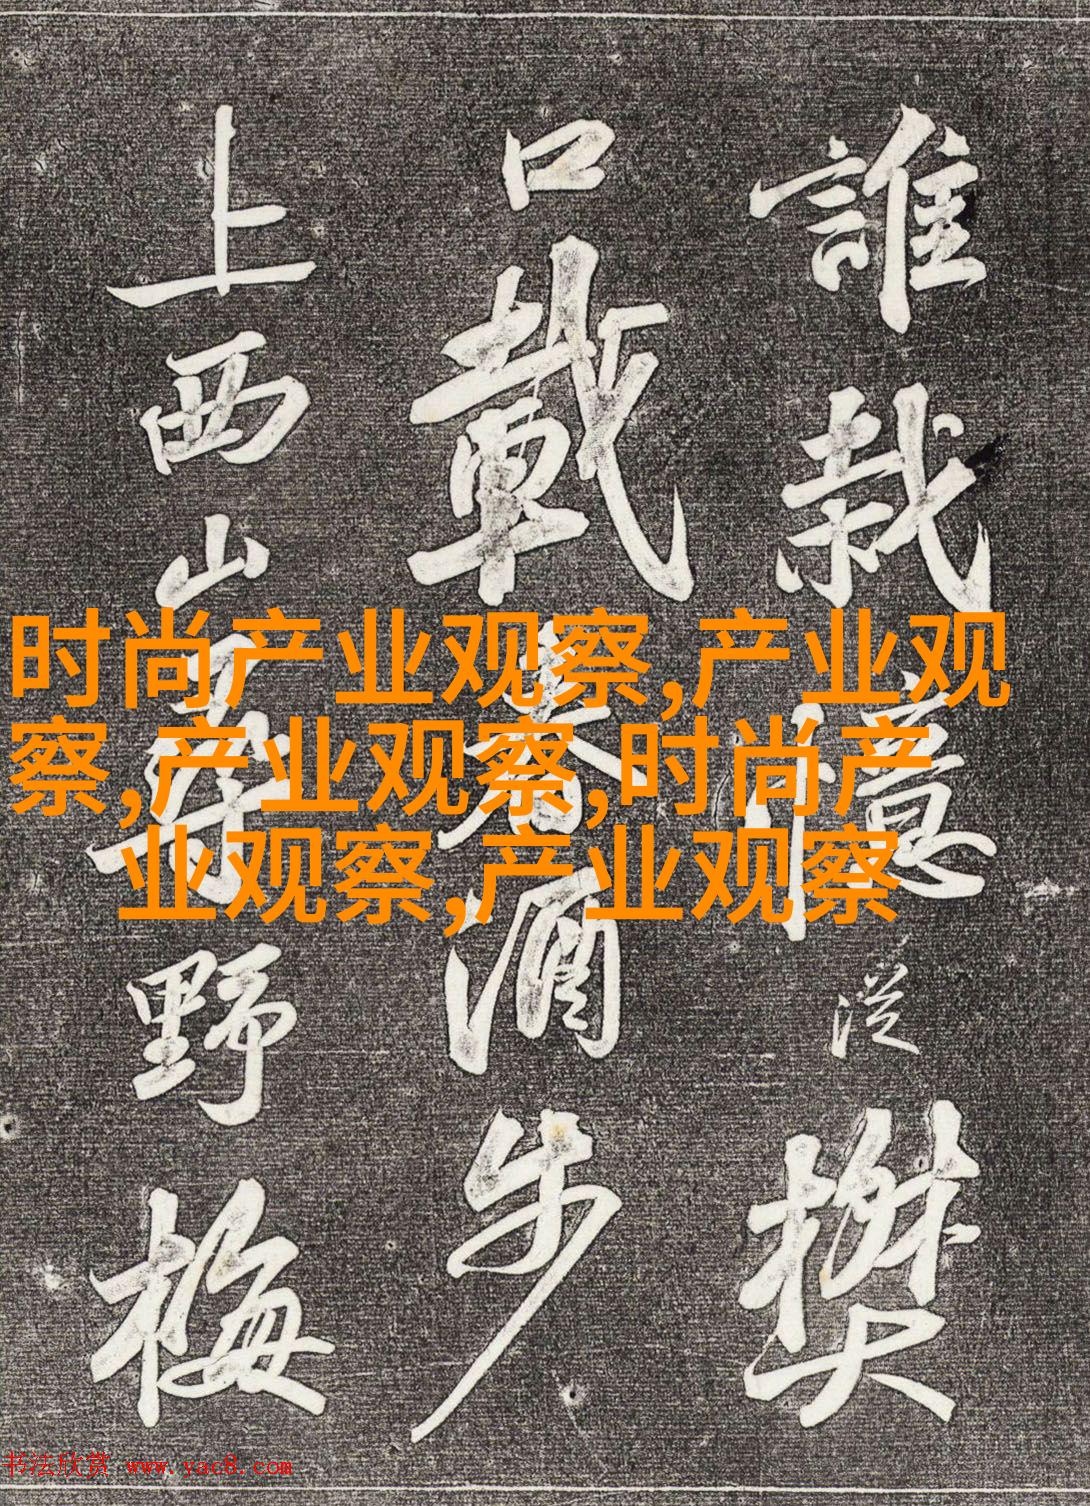 誰栽憶從樊
口載春酒步
上西山尋野梅
时尚产业观察,产业观
察,产业观察,时尚产
业观察,产业观察
书法欣赏 www.yac8.com